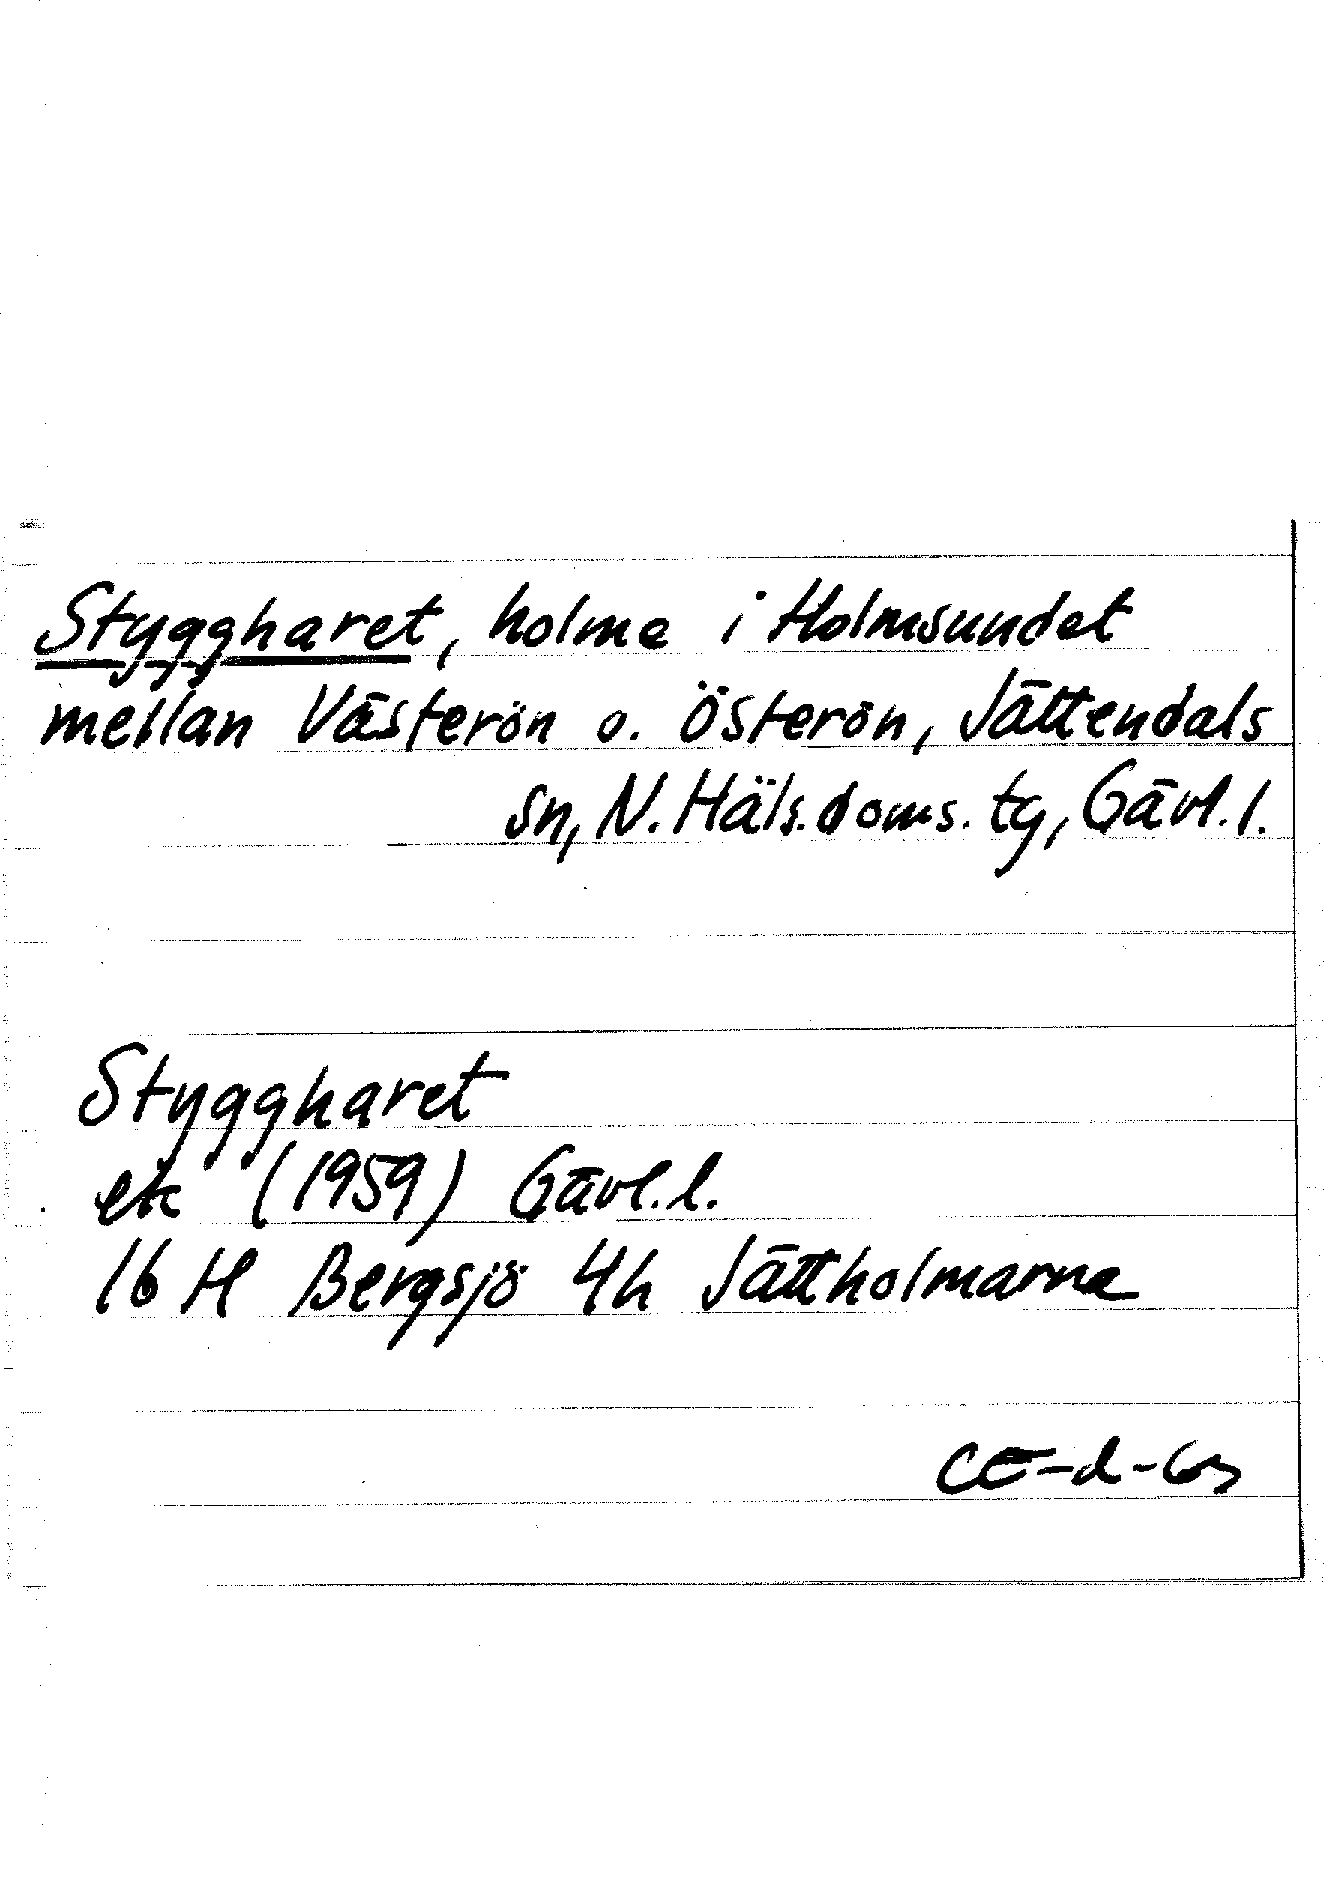 Styggharet, holme i Holmsundet
mellan Västerön o. Österön, Jättendals
sn, N. Häls. doms. tg, Gävl. l.
Styggharet
ek (1959) Gävl. l.
16 H Bergsjö 4h Jättholmarna